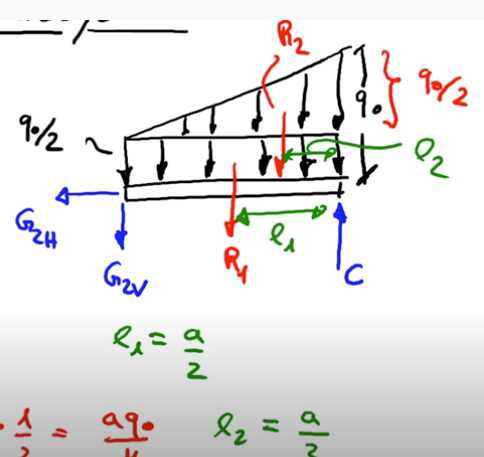 R₂
q₀/2
q₀
q₀/2
l₂
G₂H
G₂V
R₁
l₁
C
l₁ = a/2
· 1/2 = aq₀/4
l₂ = a/3